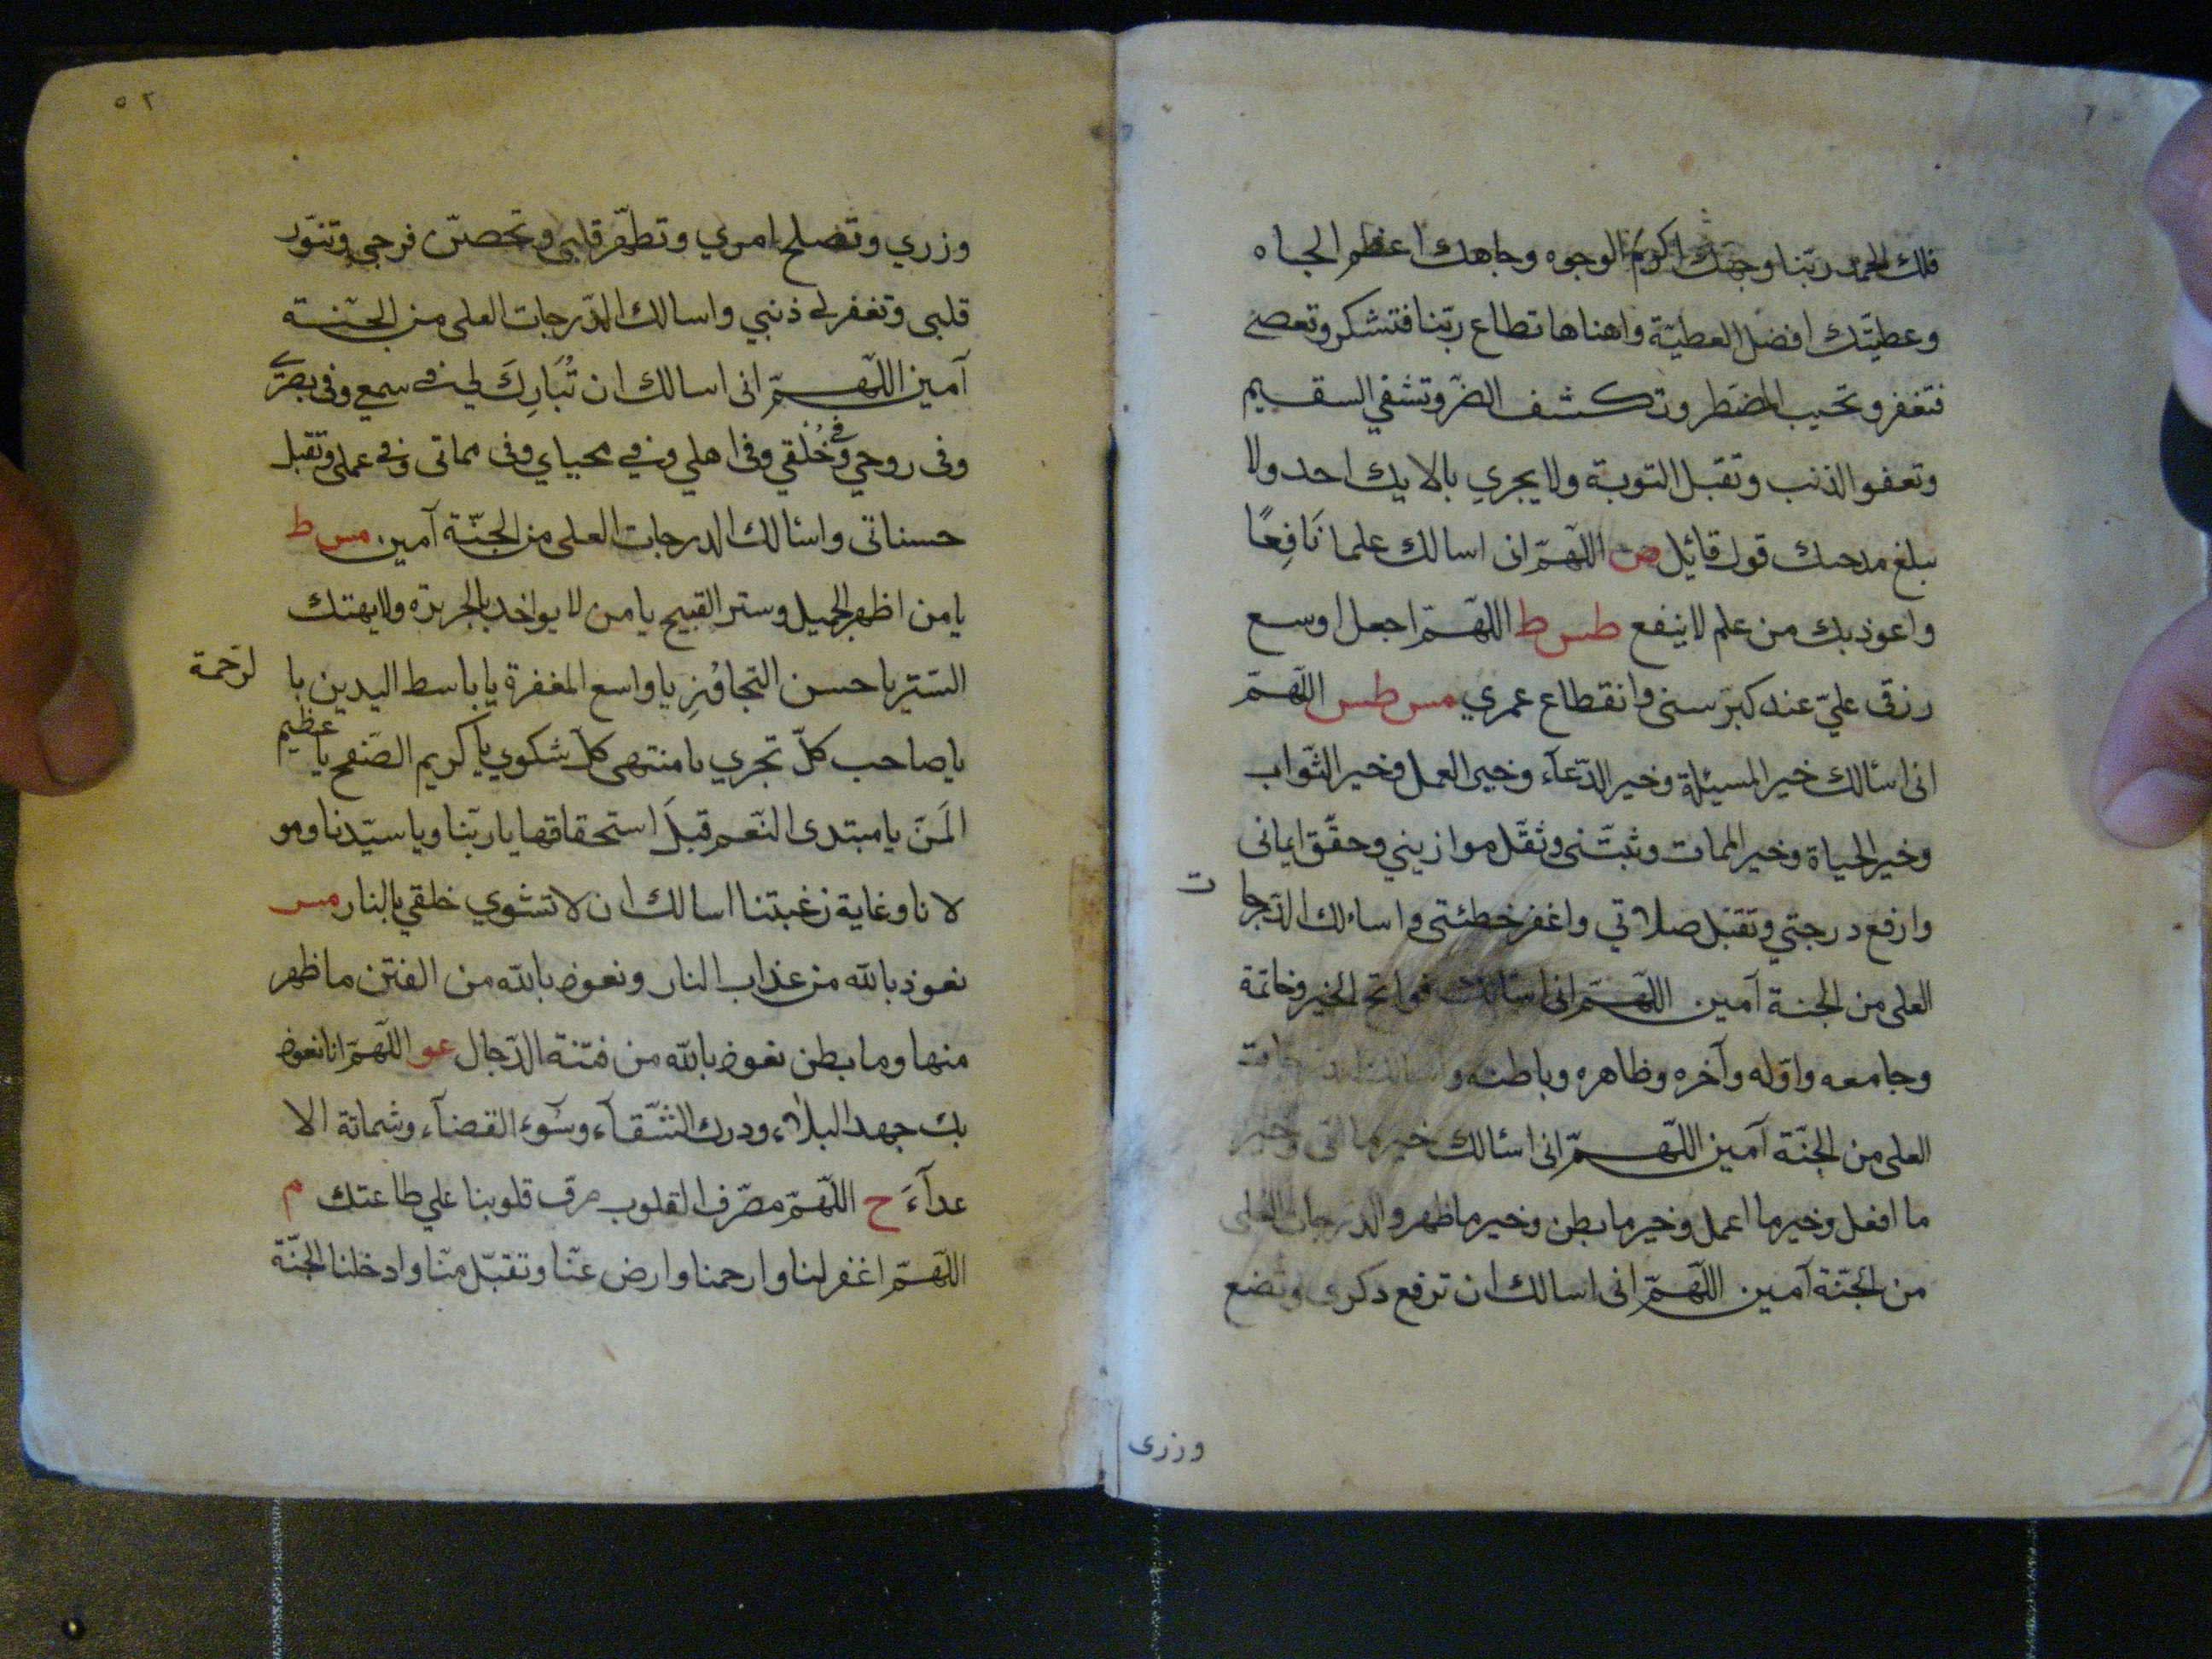 فلك الحمد ربّنا وجهك اكرم الوجوه وجاهك اعظم الجاه
وعطيّتك افضل العطيّة واهناها تطاع ربّنا فتشكر وتعصى
فتغفر وتجيب المضطر وتكشف الضرّ وتشفي السقيم
وتعفو الذنب وتقبل التوبة ولا يجزي بالايك احد ولا
يبلغ مدحك قول قائيل مص اللّهمّ انى اسالك علما نَافِعًا
واعوذ بك من علم لا ينفع طس ط اللّهمّ اجعل اوسع
رزقى عليّ عند كبر سنى وانقطاع عمري مس طس اللّهمّ
انى اسالك خير المسئلة وخير الدّعآء وخير العمل وخير الثّواب
وخير الحياة وخير الممات وثبّتنى وثقّل موازيني وحقّق ايمانى
وارفع درجتي وتقبّل صلاتي واغفر خطئتى واسالك الدّرجا
ت
العلى من الجنة آمين اللّهمّ انى اسالك فواتح الخير وخاتمة
وجامعه واوّله وآخره وظاهره وباطنه
العلى من الجنّة آمين اللّهمّ انى اسالك خير ما اتى وخير
ما افعل وخير ما اعمل وخير ما بطن وخير ما ظهر والدرجات العلى
من الجنّة آمين اللّهمّ انى اسالك ان ترفع ذكرى وتضع
وزرى
٥٢
وزري وتصلح امري وتطهّر قلبى وتحصّن فرجي وتنوّر
قلبى وتغفر لى ذنبي واسالك الدّرجات العلى من الجنة
آمين اللّهمّ انى اسالك ان تُبَارِكَ لى فى سمعي وفى بصرى
وفى روحي وفى خُلُقي وفى اهلي وفي محياي وفى مماتى وفى عملى وتقبل
حسناتى واسالك الدرجات العلى من الجنّة آمين مس ط
يا من اظهر الجميل وستر القبيح يا من لا يواخذ بالجريرة ولا يهتك
السّتر يا حسن التجاوُزِ يا واسع المغفرة يا باسط اليدين با
لرّحمة
يا صاحب كلّ نجوي يا منتهى كلّ شكوي يا كريم الصّفح يا عظيم
المَنّ يا مبتدى النّعم قبلَ استحقاقها يا ربّنا ويا سيّدنا ومو
لانا وغاية رغبتنا اسالك ان لا تشوي خلقي بالنار مس
نعوذ بالله من عذاب النار ونعوذ بالله من الفتن ما ظهر
منها وما بطن نعوذ بالله من فتنة الدّجال عو اللّهمّ انا نعوذ
بك جهد البلآء ودرك الشّقآء وسُوء القضآء وشماتة الا
عدآءَ ح اللّهمّ مصّرف القلوب صرف قلوبنا علي طاعتك م
اللّهمّ اغفر لنا وارحمنا وارض عنّا وتقبّل منّا وادخلنا الجنّة